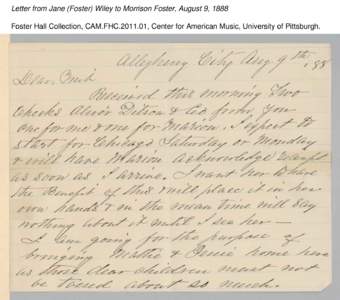 Letter from Jane (Foster) Wiley to Morrison Foster, August 9, 1888
Foster Hall Collection, CAM.FHC.2011.01, Center for American Music, University of Pittsburgh.
Allegheny City Aug 9th, 88
Dear Mit
Received this morning Two
Checks Oliver Ditson & Co from you
one for me & one for Marion. I expect to
start for Chicago Saturday or Monday
& will have Marion acknowledge receipt
as soon as I arrive. I want her to have
the Benefit of this & will place it in her
own hands & in the mean time will say
nothing about it until I see her—
I am going for the purpose of
bringing Mattie & home here
as those dear children must not
be about so much.